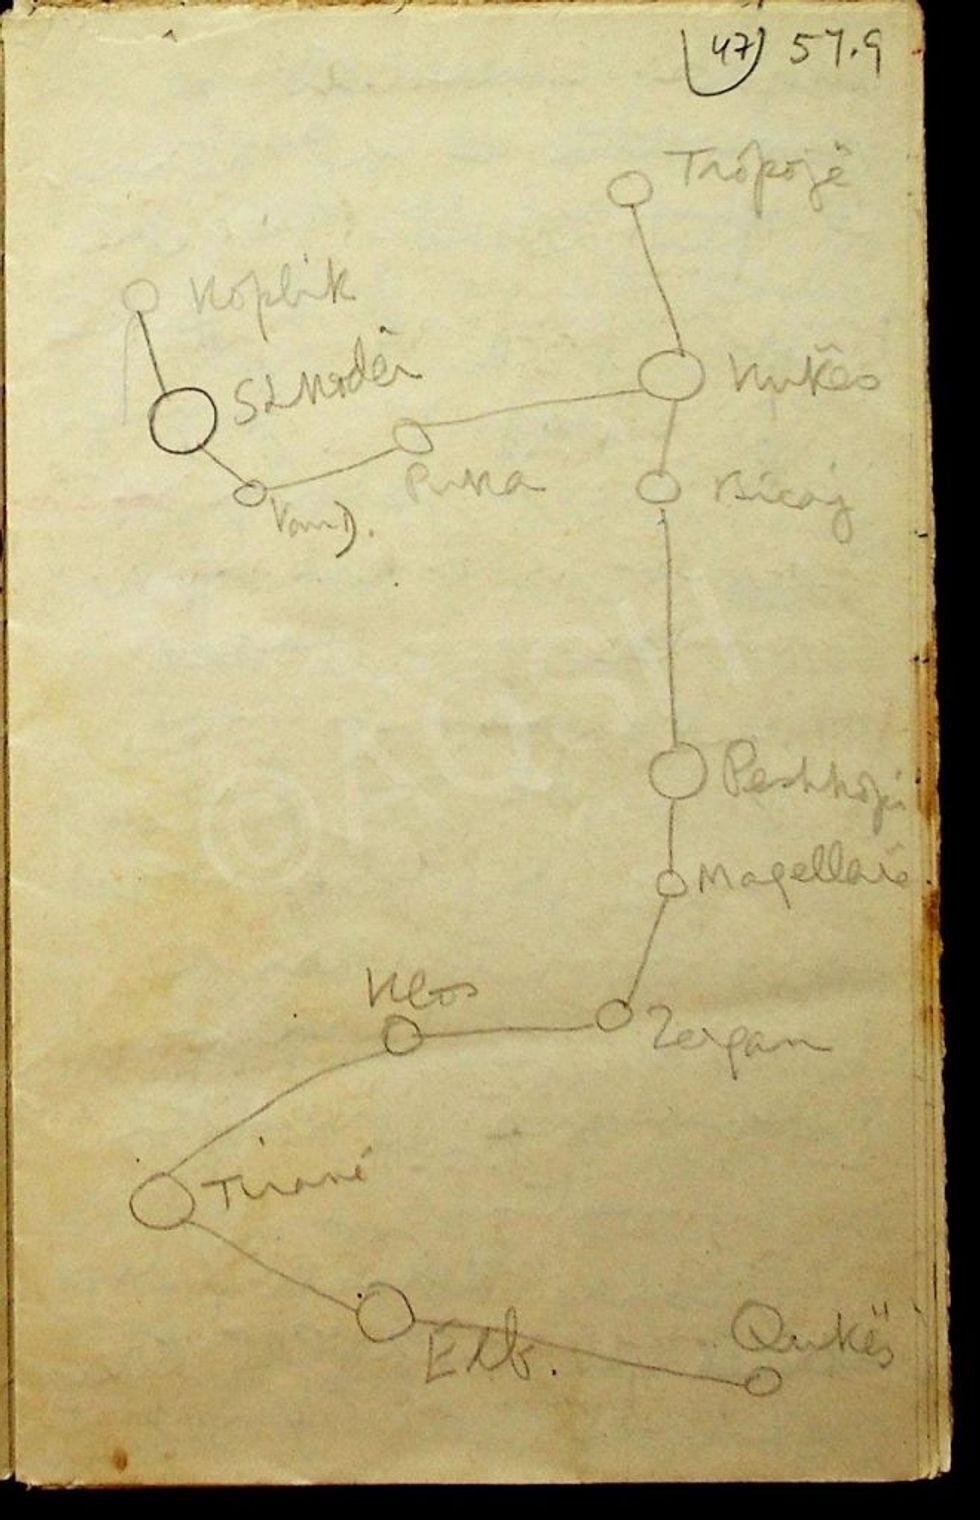 47) 57.9
Tropojë
Koplik
Shkodër
Kukës
Puka
Bicaj
Vau D.
©AQSH
Peshkopi
Magellarë
Klos
Zerqan
Tiranë
Elb.
Qukës